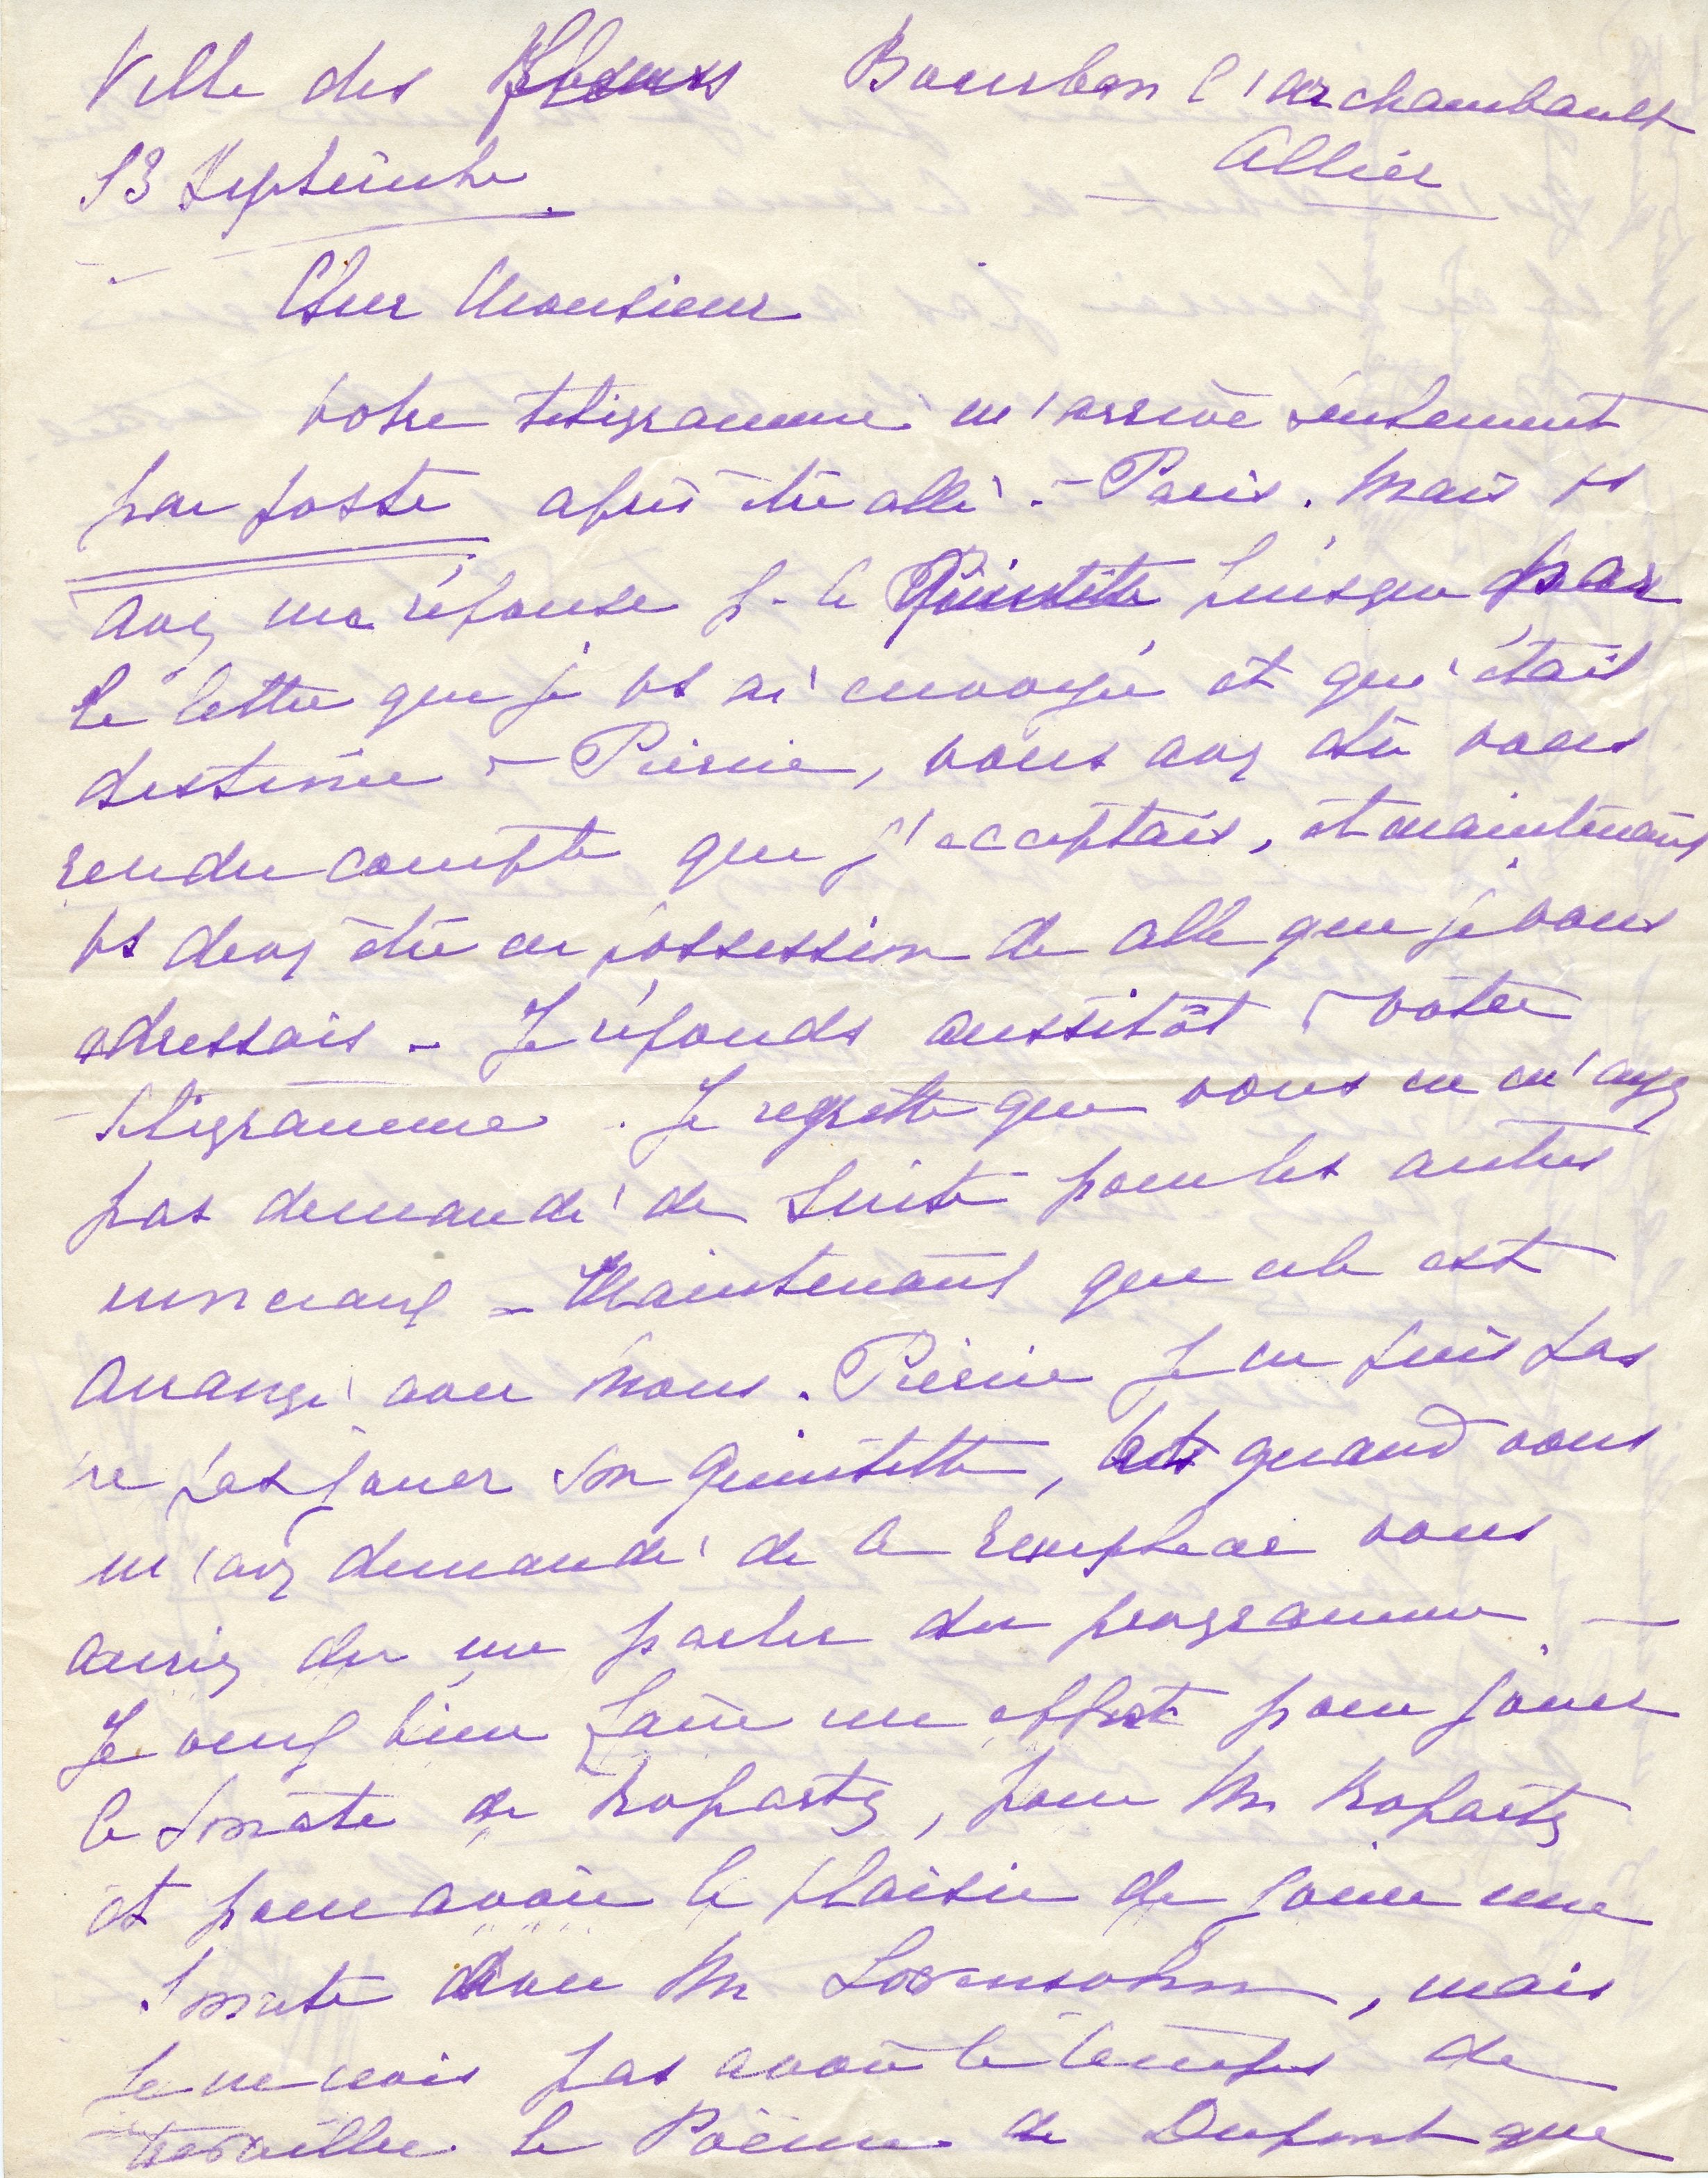 Ville des Fleurs Bourbon l'archambault
Allier
13 Septembre
Cher Monsieur
votre télégramme m'arrive seulement
par poste après être allé à Paris. Mais vs
avez ma réponse p. le Quintette puisque par
la lettre que je vs ai envoyée et qui était
destinée à Pierné, vous avez dû vous
rendre compte que j'acceptais, et maintenant
vs devez être en possession de celle que je vous
adressais - Je réponds aussitôt à votre
télégramme. Je regrette que vous ne m'ayez
pas demandé de suite pour les autres
morceaux - Maintenant que cela est
arrangé avec Mons. Pierné je ne puis pas
ne pas jouer son Quintette, mais quand vous
m'avez demandé de le remplacer vous
auriez du me parler du programme -
Je veux bien faire un effort pour jouer
la Sonate de Ropartz, pour Mr Ropartz
et pour avoir le plaisir de jouer une
Sonate avec Mr Lovensohn, mais
je ne crois pas avoir le temps de
travailler le Poème de Dupont que